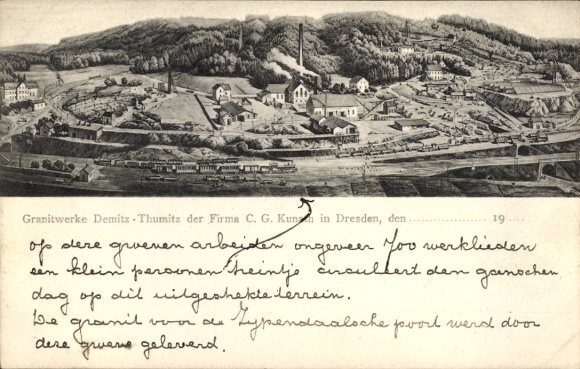 Granitwerke Demitz-Thumitz der Firma C. G. Kunath in Dresden, den .................... 19 ....
op deze groeven arbeiden ongeveer 700 werklieden
een klein personen treintje circuleert den ganschen
dag op dit uitgestrekte terrein.
De granit voor de Zijpendaalsche poort werd door
deze groeve geleverd.